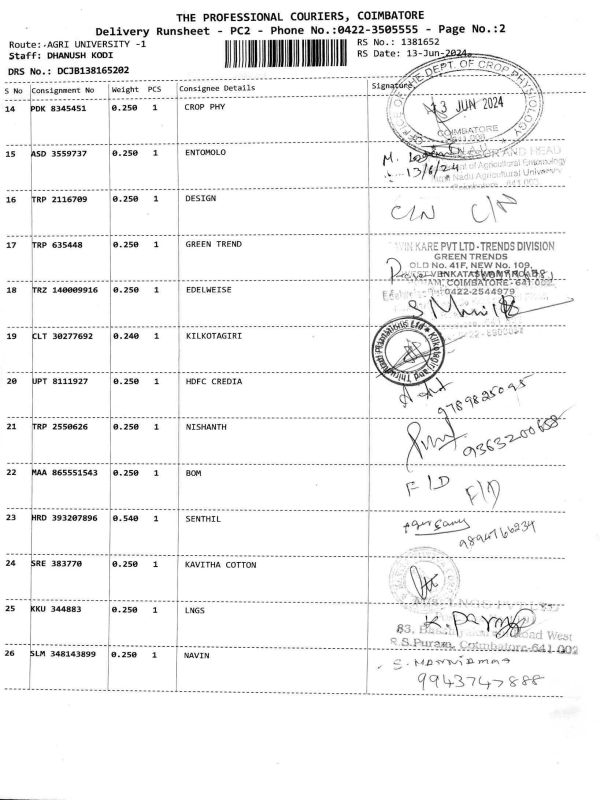 THE PROFESSIONAL COURIERS, COIMBATORE
Delivery Runsheet - PC2 - Phone No.:0422-3505555 - Page No.:2
Route: AGRI UNIVERSITY -1 RS No.: 1381652
Staff: DHANUSH KODI RS Date: 13-Jun-2024
DRS No.: DCJB138165202
S No Consignment No Weight PCS Consignee Details Signature
14 PDK 8345451 0.250 1 CROP PHY
DEPT. OF CROP PHYSIOLOGY
13 JUN 2024
COIMBATORE
15 ASD 3559737 0.250 1 ENTOMOLO
AND HEAD
of Agricultural Entomology
Nadu Agricultural University
13/6/24
16 TRP 2116709 0.250 1 DESIGN C/N C/N
17 TRP 635448 0.250 1 GREEN TREND
KARE PVT LTD - TRENDS DIVISION
GREEN TRENDS
OLD No. 41F, NEW No. 109,
VENKATASWAMY ROAD
COIMBATORE - 641 002.
0422-2544979
18 TRZ 140009916 0.250 1 EDELWEISE
19 CLT 30277692 0.240 1 KILKOTAGIRI
Kilkotagiri And Thirumbadi Plantations Ltd
20 UPT 8111927 0.250 1 HDFC CREDIA
9789825095
21 TRP 2550626 0.250 1 NISHANTH
9363200658
22 MAA 865551543 0.250 1 BOM F/D F/D
23 HRD 393207896 0.540 1 SENTHIL
9894766234
24 SRE 383770 0.250 1 KAVITHA COTTON
25 KKU 344883 0.250 1 LNGS
83, Road West
R.S.Puram, Coimbatore-641 002
26 SLM 348143899 0.250 1 NAVIN
9943747888